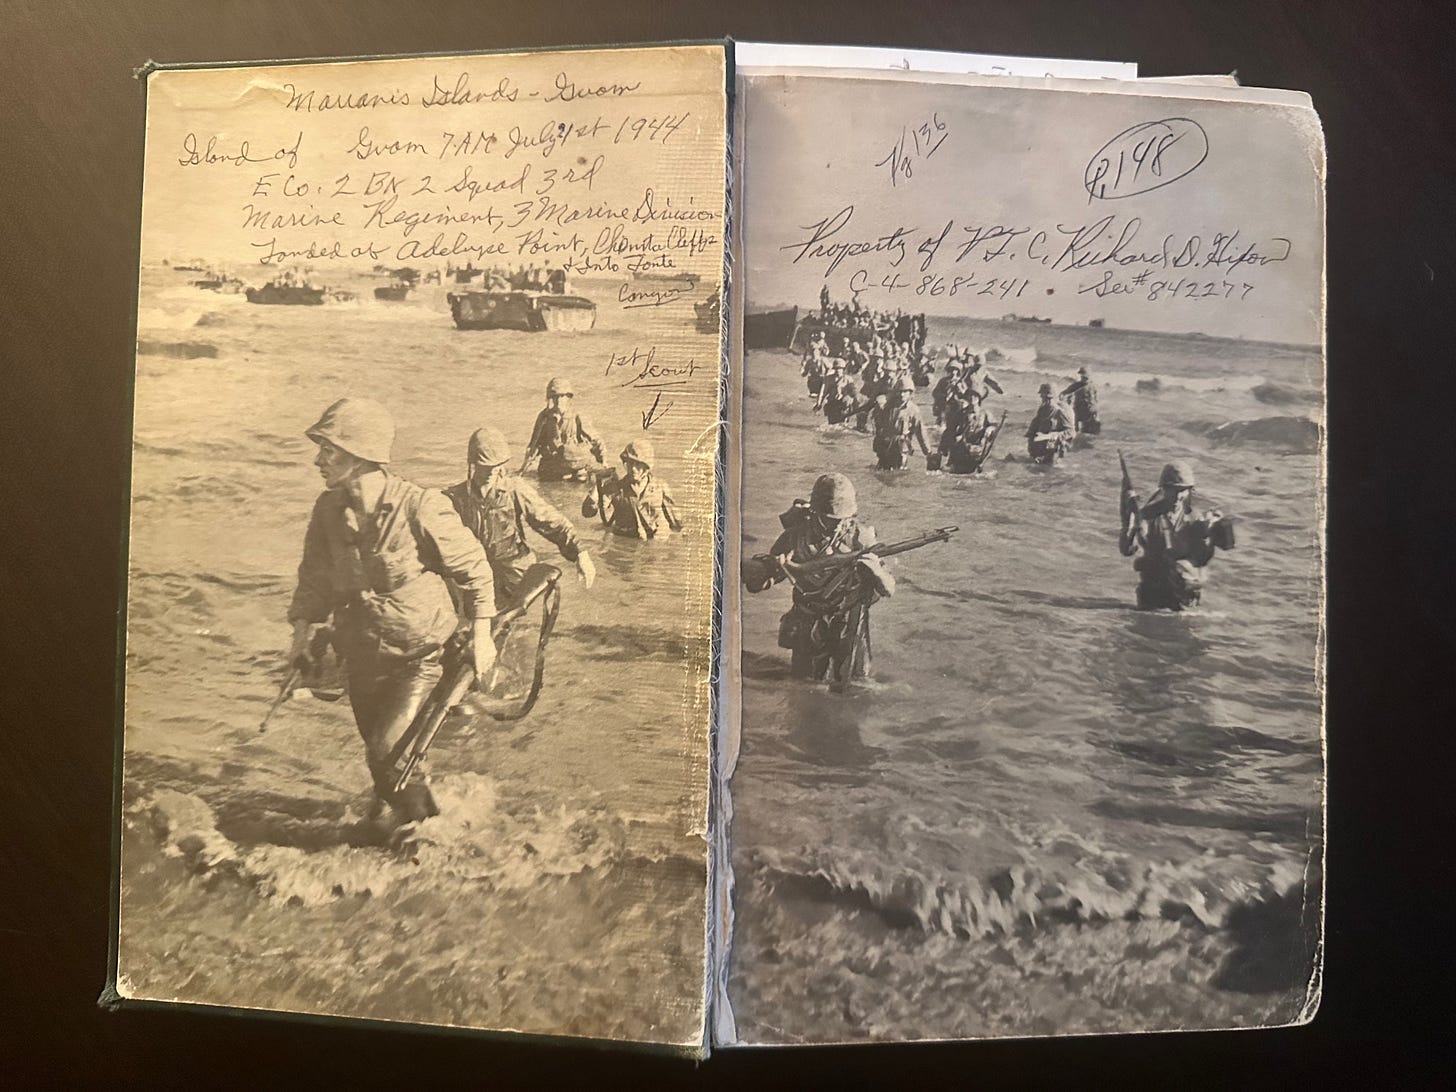 Marianis Islands - Guom
Island of Guom 7 AM July 21st 1944
E Co. 2 BN 2 Squad 3rd
Marine Regiment, 3 Marine Division
Landed at Adelupe Point, Chonita Cliffs
& Into Fonte
Canyon
1st Scout
Pg 136
P. 148
Property of P.F.C. Richard D. Hixon
C-4-868-241 Ser# 842277